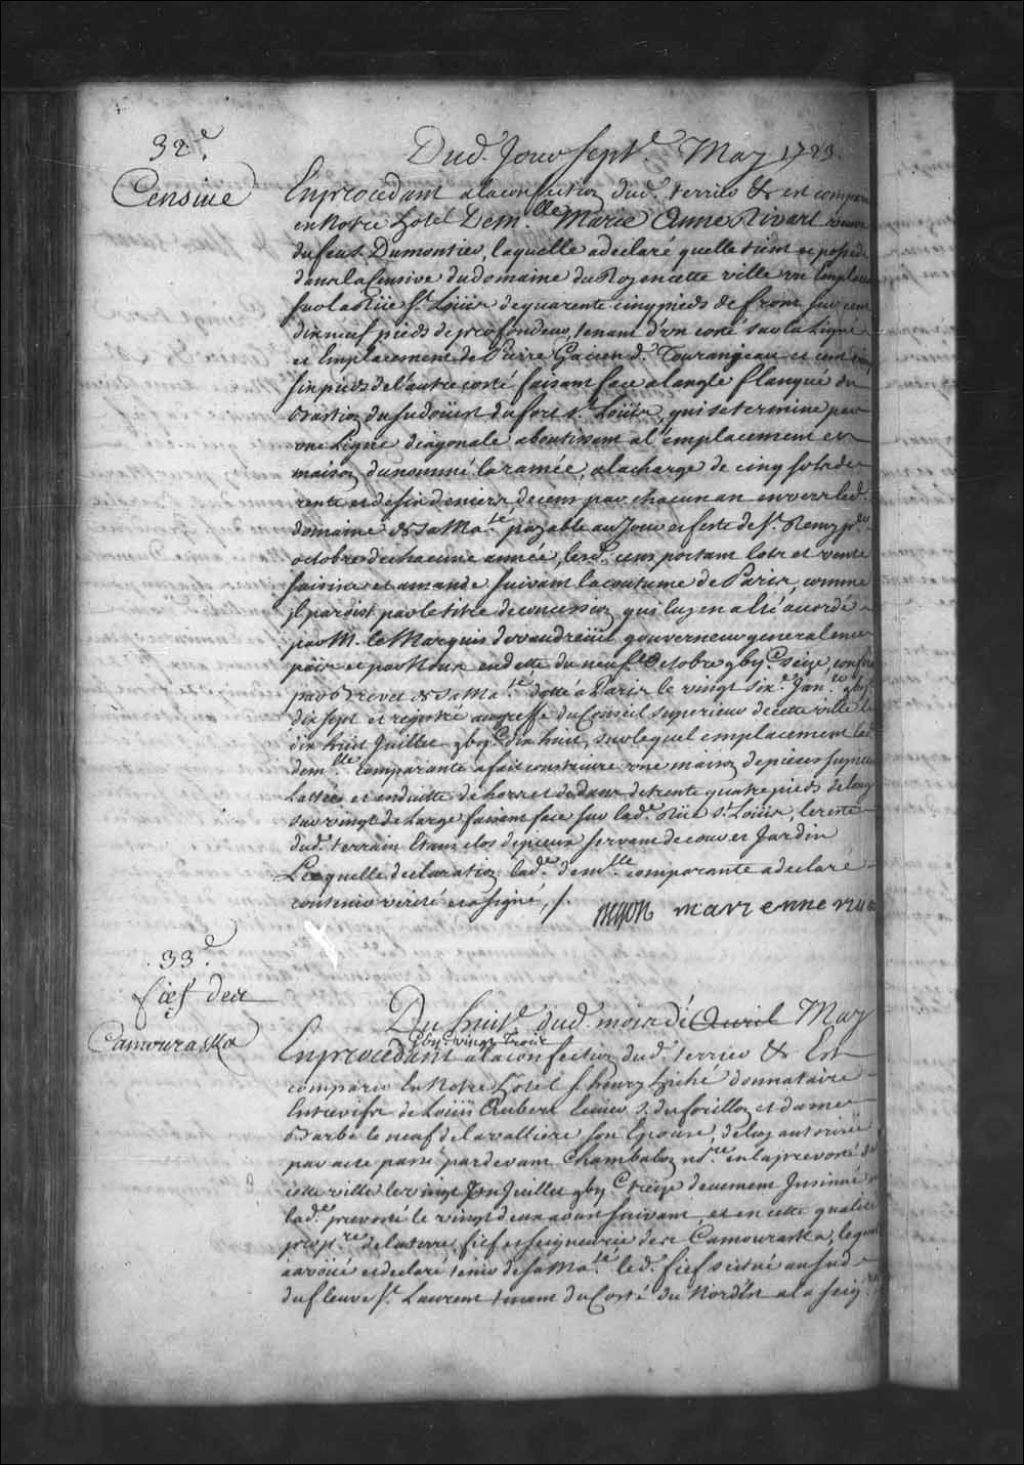 32.e
Censive
Dud. Jour sept.e May 1723.
En procedant a la confection dud. terrier &c est comparu
en Notre hotel Dem.lle Marie Anne Rivart veuve
du feu s. Dumontier, laquelle a declaré quelle tient et possede
dans la Censive du domaine du Roy en cette ville un emplacem
sur la Rüe S.t Loüis de quarente cinq pieds de front sur cent
dix neuf pieds de profondeur, tenant d'un costé sur la Ligne
et l'emplacement de Pierre Gacien d. Tourangeau et cent
six pieds de l'autre costé faisant face a l'angle flanqué du
Bastion du sudoüest du fort S.t Loüis, qui se termine par
une Ligne diagonale aboutissant a l'emplacement et
maison du nommé la ramée, a la charge de cinq sols de
rente et de six deniers de cens par chacun an envers led.
domaine de sa Ma.té payable au Jour et feste de S.t Remy p.er
octobre de chacune année, lesd. cens portant lots et vente
saisine et amande suivant la coutume de Paris, comme
jl paroist par le titre de concession qui luy en a esté accordé
par M. le Marquis de vaudreüil gouverneur general en ce
païs et par Nous en datte du neuf.e Octobre gbvj.c seize, confir
par Brevet de sa Ma.té datté a Paris le vingt six.e Jan.er gbvj.c
dix sept et registré au greffe du Conseil superieur de cette ville le
dix huit Juillet gbvj.c dix huit, sur lequel emplacement lad.
dem.lle comparante a fait construire une maison de pieces sur pieces
Lattées et enduitte de hors et dedans de trente quatre pieds de long
sur vingt de Large faisant face sur lad.e Rüe S.t Loüis, le reste
dud. terrain Etant clos de pieux servant de cour et Jardin
Laquelle declaration lad.e dem.lle comparante a declaré
contenir verité et a signé, /.
Begon marianne riva
33.e
fief de
Camouraska
Du huit.e dud. mois de Avril May
gbvj.c vingt Trois
En procedant a la confection dud. terrier &c Est
comparu En Notre hotel s. henry hiché donnataire
Entrevifs de Loüis Aubert Ecuier s. du forillon et dame
Barbe le neuf de la valliere son Epouse, de luy autorisée
par acte passé pardevant Chambalon no.re en la prevosté de
cette ville le vingt Juillet gbvj.c treize deuement Jnsinué
lad.e prevosté le vingt deux aoust suivant, et en cette qualité
prop.re de la terre, fief et seigneurie de Camouraska, lequel
a avoüé et declaré tenir de sa Ma.té led. fief scitué au sud
du fleuve S.t Laurent tenant du Costé du Nordest a la seig.rie